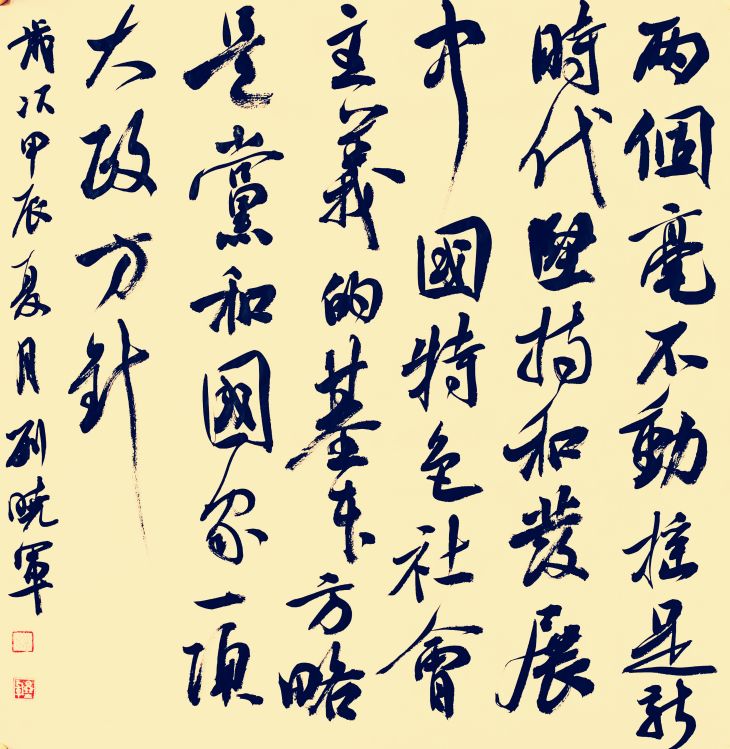 两個毫不動摇是新
時代堅持和發展
中國特色社會
主義的基本方略
是黨和國家一項
大政方針
歲次甲辰夏月劉曉軍